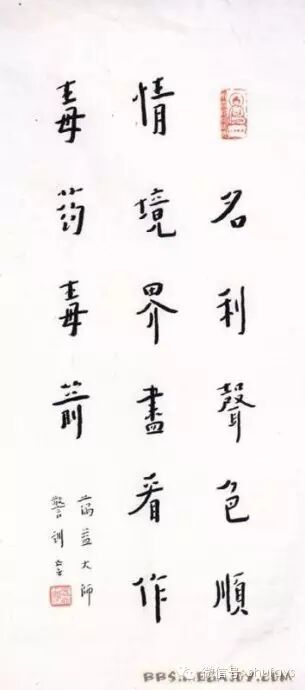 名利聲色順
情境界盡看作
毒葯毒箭
蕅益大師
警訓
微信号: shufayc